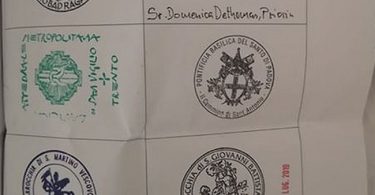 OBAD RAGA
Sr. Domenica Dethomas, Priorin
METROPOLITANA
"SAN VIGILIO"
TRENTO
PONTIFICIA BASILICA DEL SANTO DI PADOVA
Il Cammino di Sant'Antonio
PARROCCHIA DI S. MARTINO VESCOVO
CCHIA di S. GIOVANNI BATTIST
.06.2019